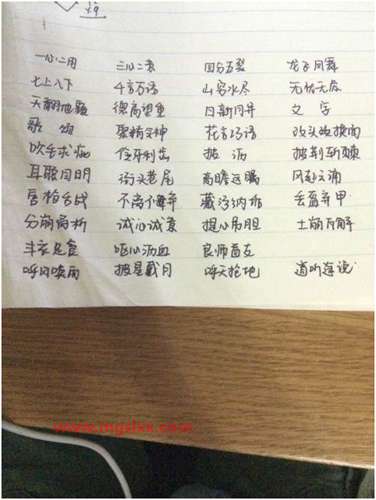 一心二用 三心二意 四分五裂 龙飞凤舞
七上八下 千言万语 山穷水尽 无忧无虑
天翻地覆 德高望重 日新月异 文字
歌颂 聚精会神 花言巧语 改头换面
吹毛求疵 伶牙利齿 披沥 披荆斩棘
耳聪目明 街头巷尾 高瞻远瞩 风起云涌
唇枪舌战 不屑置辩 藏污纳垢 丢盔弃甲
分崩离析 诚心诚意 提心吊胆 土崩瓦解
丰衣足食 呕心沥血 良师益友
呼风唤雨 披星戴月 呼天抢地 道听途说
www.mgslxx.com